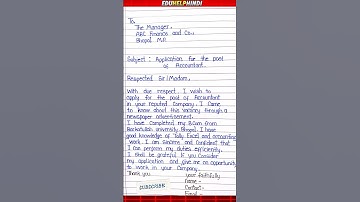 EDUHELPHINDI
To,
The Manager,
ABC Finance and Co.,
Bhopal M.P.
Subject : Application for the post
of Accountant.
Respected Sir/Madam,
With due respect, I wish to
apply for the post of Accountant
in your reputed Company. I came
to know about this vacancy through a
newspaper advertisement.
I have completed my B.Com from
Barkatullah university Bhopal. I have
good knowledge of Tally Excel and accounting
work. I am sincere and confident that
I can perform my duties efficiently.
I shall be grateful if you consider
my application and give me an opportunity
to work in your Company.
Thank you
your faithfully
Name -
Contact -
Email -
SUBSCRIBE